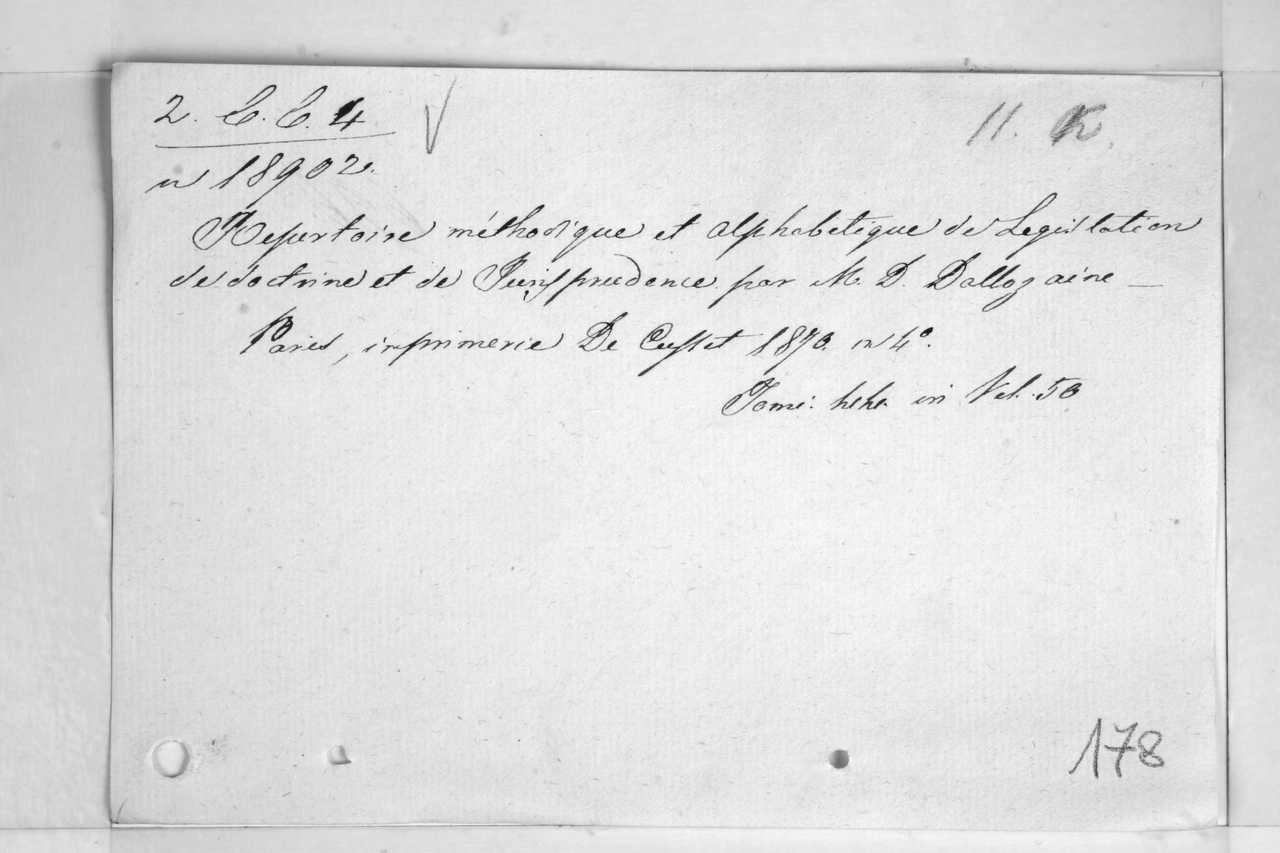 2. C. C. 4
11. K.
n 18902.
Repertoire méthodique et alphabetique de Legislation
de doctrine et de Jurisprudence par M. D. Dalloz aine —
Paris, imprimerie De Cusset 1870. in 4°.
Tomi: 44. in Vol. 50
178